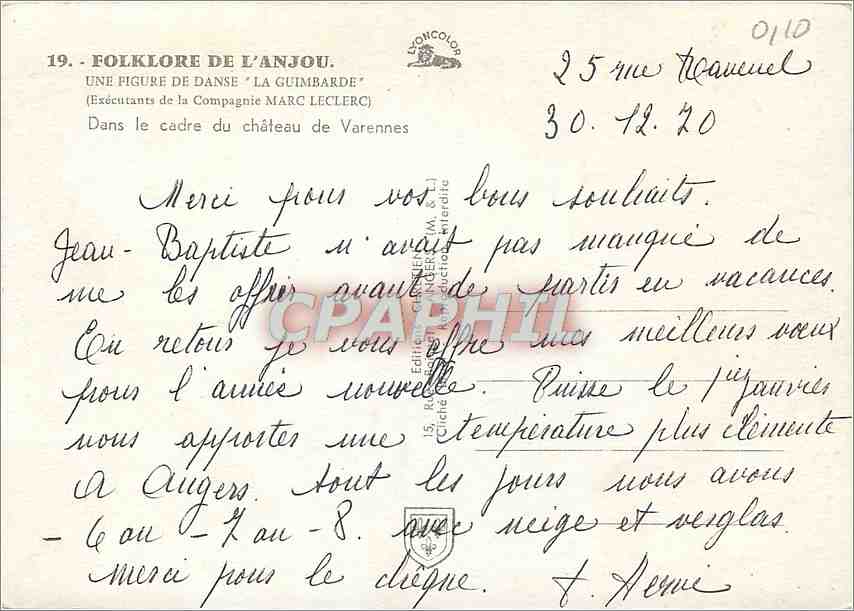 0,10
LYONCOLOR
19. - FOLKLORE DE L'ANJOU.
UNE FIGURE DE DANSE "LA GUIMBARDE"
(Exécutants de la Compagnie MARC LECLERC)
Dans le cadre du château de Varennes
25 rue Ravenel
30.12.70
Merci pour vos bons souhaits.
Jean-Baptiste n'avait pas manqué de
me les offrir avant de partir en vacances.
En retour je vous offre mes meilleurs vœux
pour l'année nouvelle. Puisse le 1er janvier
vous apporter une température plus clémente
A Angers. tout les jours nous avons
- 6 ou - 7 ou - 8. avec neige et verglas.
Merci pour le chèque. F. Hervé
Editions CHRÉTIEN
15, Rue ANGERS (M. & L.)
Cliché Reproduction Interdite
CPAPHIL